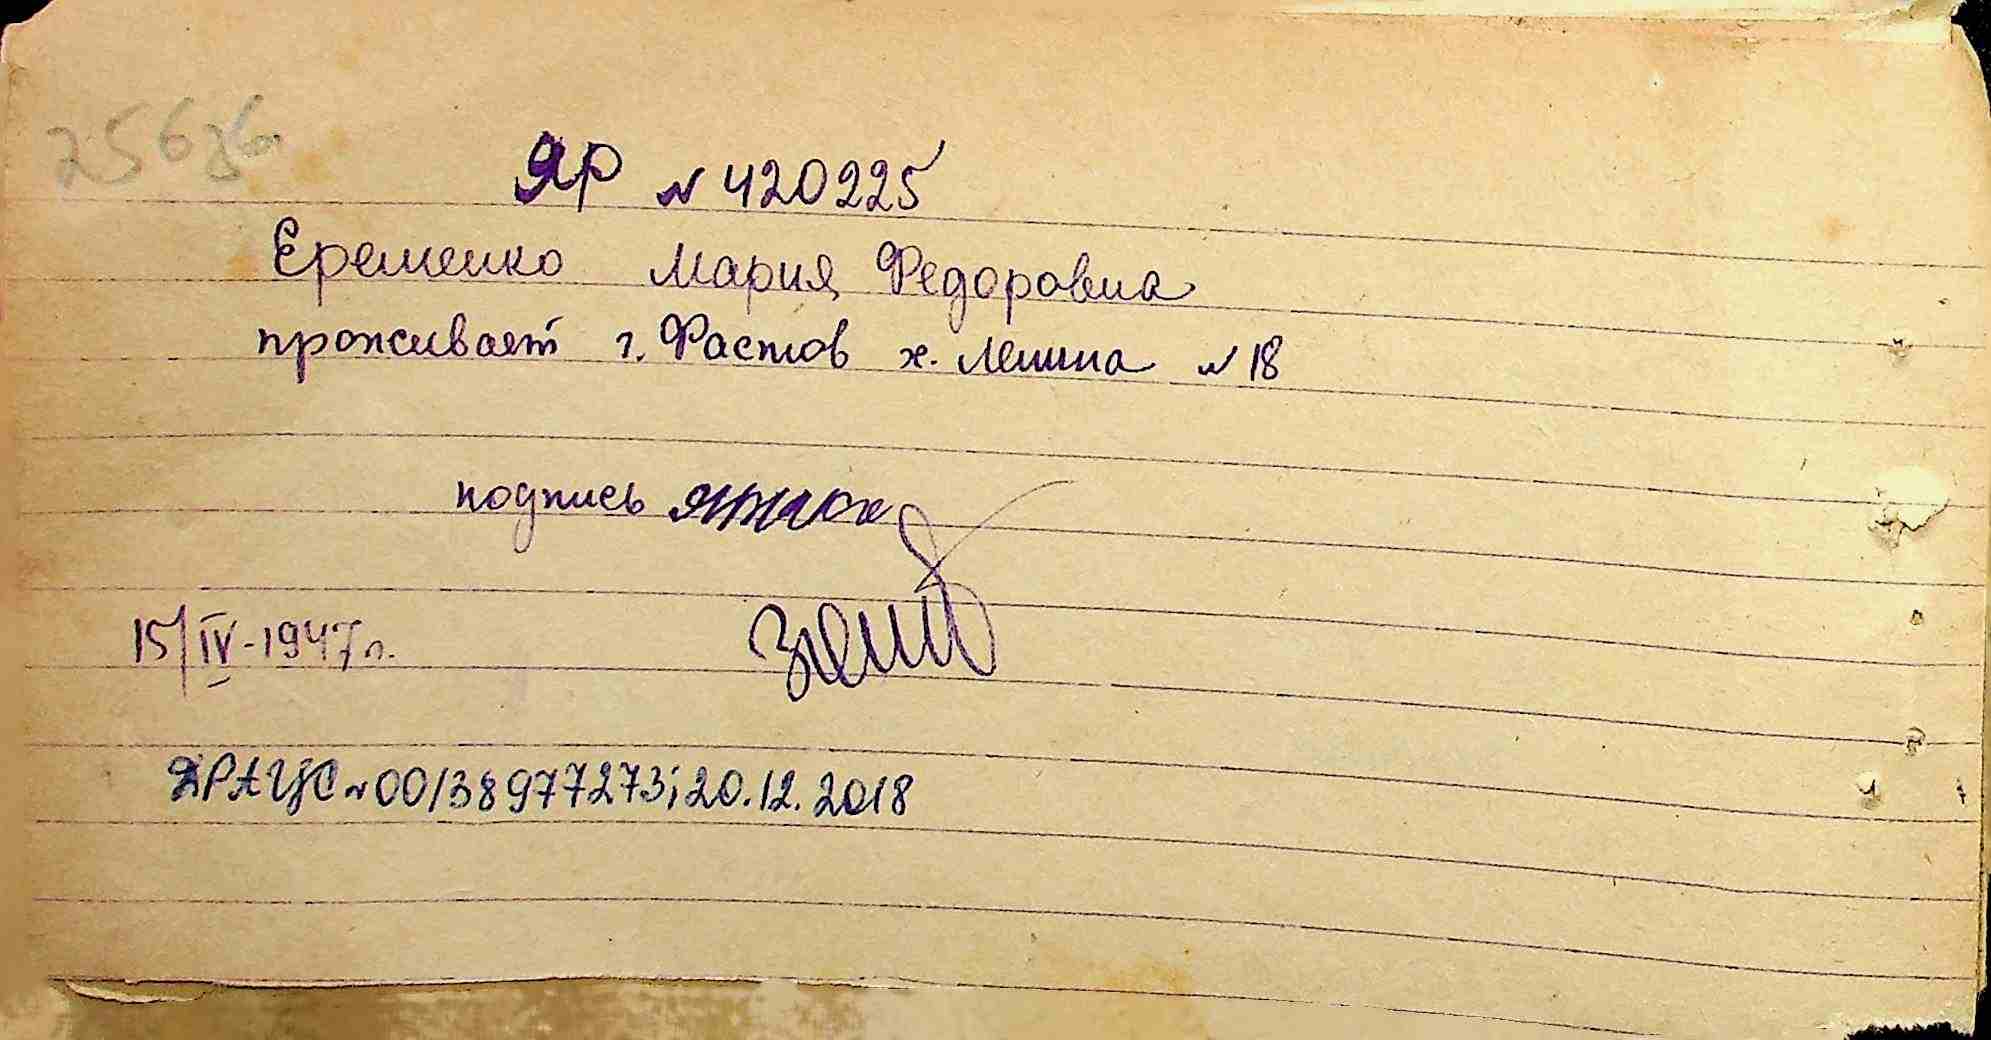 256зв
ЯР N 420225
Еременко Мария Федоровна
проживает г. Фастов х. Ленина N 18
подпись
15/IV-1947 г.
ДРАЦС N 00138977273; 20.12.2018